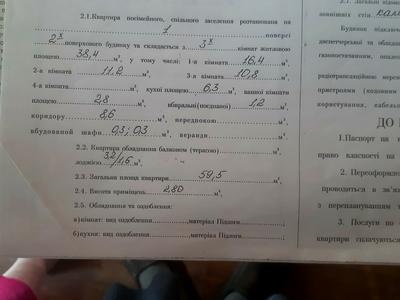 2.1.Квартира посімейного, спільного заселення розташована на
1 поверсі
2х поверхового будинку та складається з 3х кімнат житловою
площею 38,4 м², у тому числі: 1-а кімната 16,4 м²,
2-а кімната 11,2 м², 3-а кімната 10,8 м²,
4-а кімната м², кухні площею 6,3 м², ванної кімнати
площею 2,8 м², вбиральні(поєднаної) 1,2 м²,
коридору 8,6 м², передпокою м²,
вбудованої шафи 0,3; 0,3 м², веранди м²,
2.2. Квартира обладнана балконом (терасою) м²,
лоджією 3,2/1,6 м²,
2.3. Загальна площа квартири 59,5 м²,
2.4. Висота приміщень 2,80 м²,
2.5. Обладнання та оздоблення:
а)кімнат: вид оздоблення ,матеріал Підлоги ;
б)кухня: вид оздоблення ,матеріал Підлоги ;
2.1. Загальні підвал
зовнішніх стін
Будинок підключ
диспетчерської та обладнан
газопостачанням, опален
радіотрансляційною мереж
пристроями (кодовими
користування, кабель
ДО
1.Паспорт на к
право власності на
2. Переоформлен
проводиться в зв'яз
з переплануванням т
3. Послуги по
квартири сплачуються